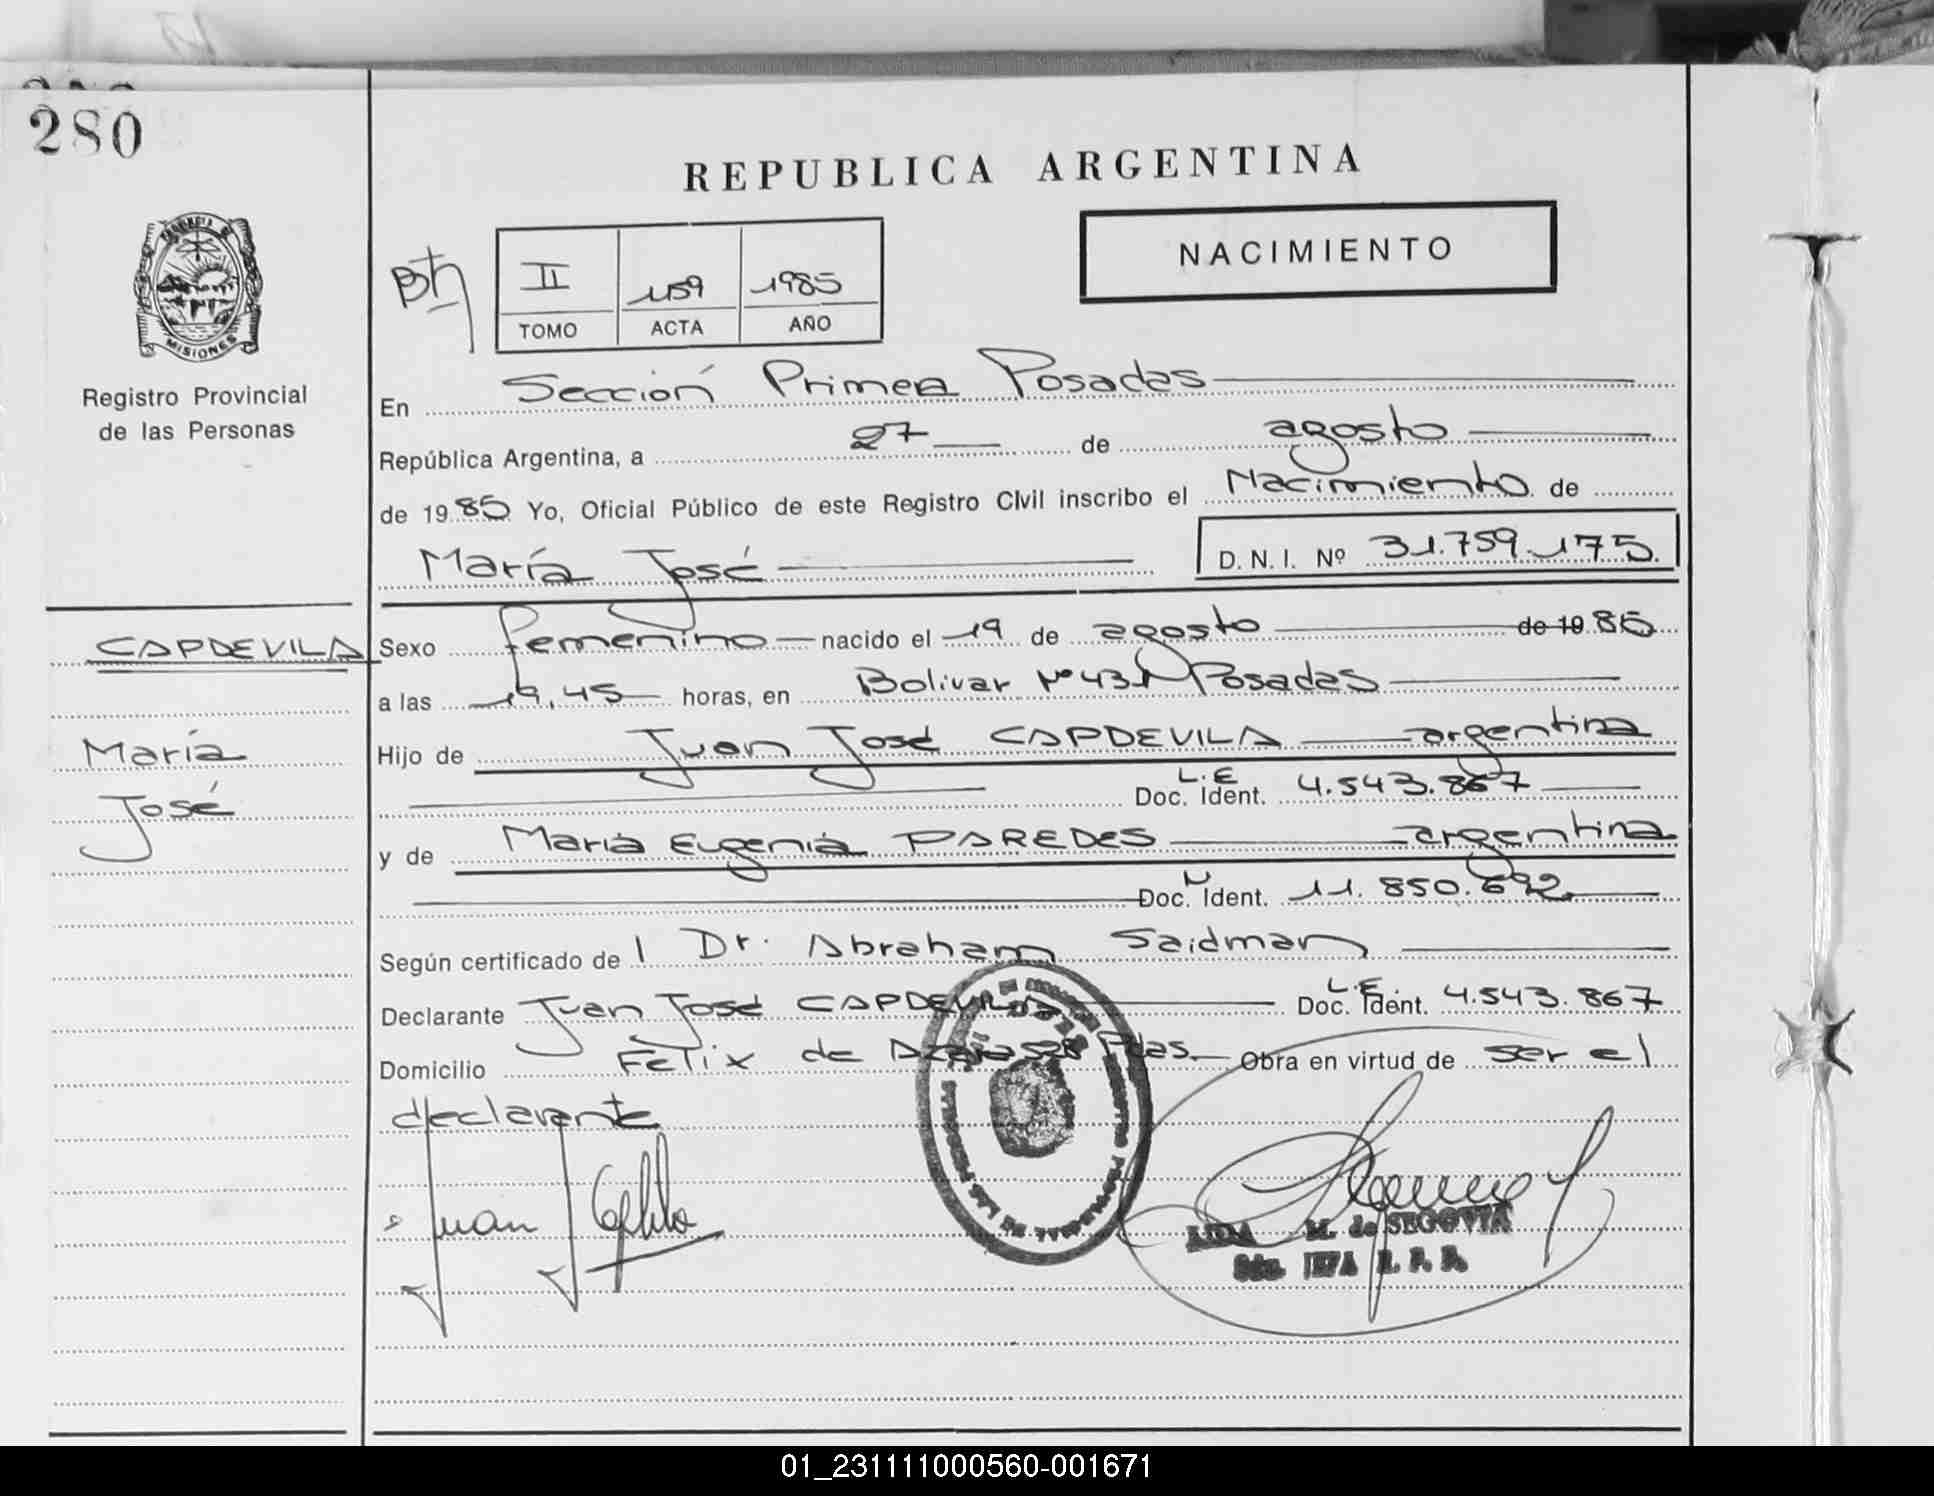 280
REPUBLICA ARGENTINA
NACIMIENTO
II 1159 1985
TOMO ACTA AÑO
PROVINCIA DE
MISIONES
Registro Provincial
de las Personas
En Sección Primera Posadas
República Argentina, a 27 de agosto
de 1985 Yo, Oficial Público de este Registro Civil inscribo el Nacimiento de
María José D. N. I. Nº 31.759.175
CAPDEVILA
María
José
Sexo femenino nacido el 19 de agosto de 19 85
a las 19,45 horas, en Bolivar Nº 431 Posadas
Hijo de Juan José CAPDEVILA argentina
L.E
Doc. Ident. 4.543.867
y de María Eugenia PAREDES argentina
N
Doc. Ident. 11.850.692
Según certificado de l Dr. Abraham Saidman
Declarante Juan José CAPDEVILA L.E. Doc. Ident. 4.543.867
Domicilio Felix de Azara 528 Pdas. Obra en virtud de ser el
declarante
Juan J Capdevila
LIDIA M. de SEGOVIA
JEFA R. P. P.
01_231111000560-001671